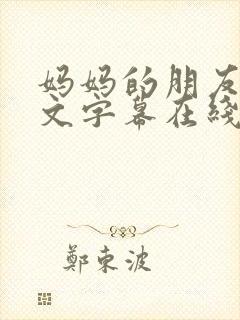 妈妈的朋友
文字幕在线
鄭東波